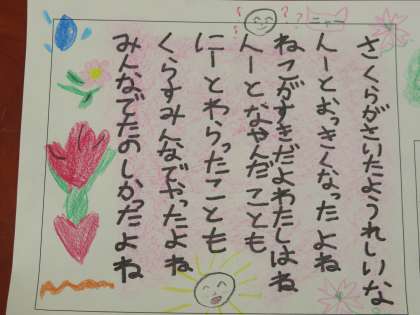 さくらがさいたようれしいな
んーとおっきくなったよね
ねこがすきだよわたしはね
んーとなやんだことも
にーとわらったことも
くらすみんなでやったよね
みんなでたのしかったよね
ニャー